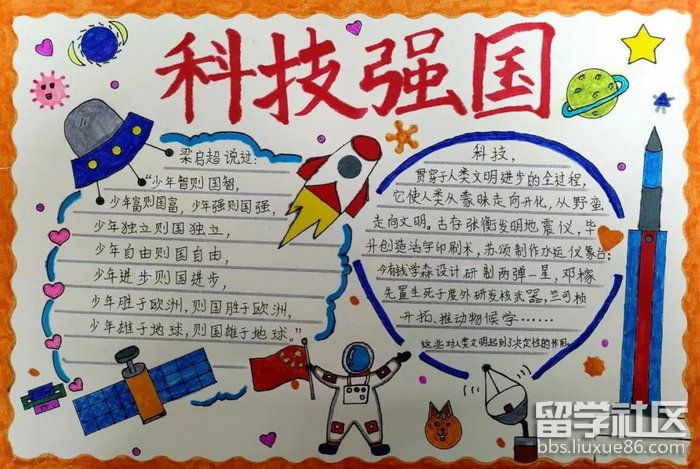 科技强国
梁启超说过:
“少年智则国智,
少年富则国富,少年强则国强,
少年独立则国独立,
少年自由则国自由,
少年进步则国进步,
少年胜于欧洲,则国胜于欧洲,
少年雄于地球,则国雄于地球。”
科技,
贯穿于人类文明进步的全过程,
它使人类从蒙昧走向开化,从野蛮
走向文明。古存张衡发明地震仪,毕
升创造活字印刷术,苏颂制作水运仪象台;
今有钱学森设计研制两弹一星,邓稼
先置生死于度外研发核武器,竺可桢
开拓、推动物候学……
这些对人类文明起到了决定性的作用。
留学社区
bbs.liuxue86.com